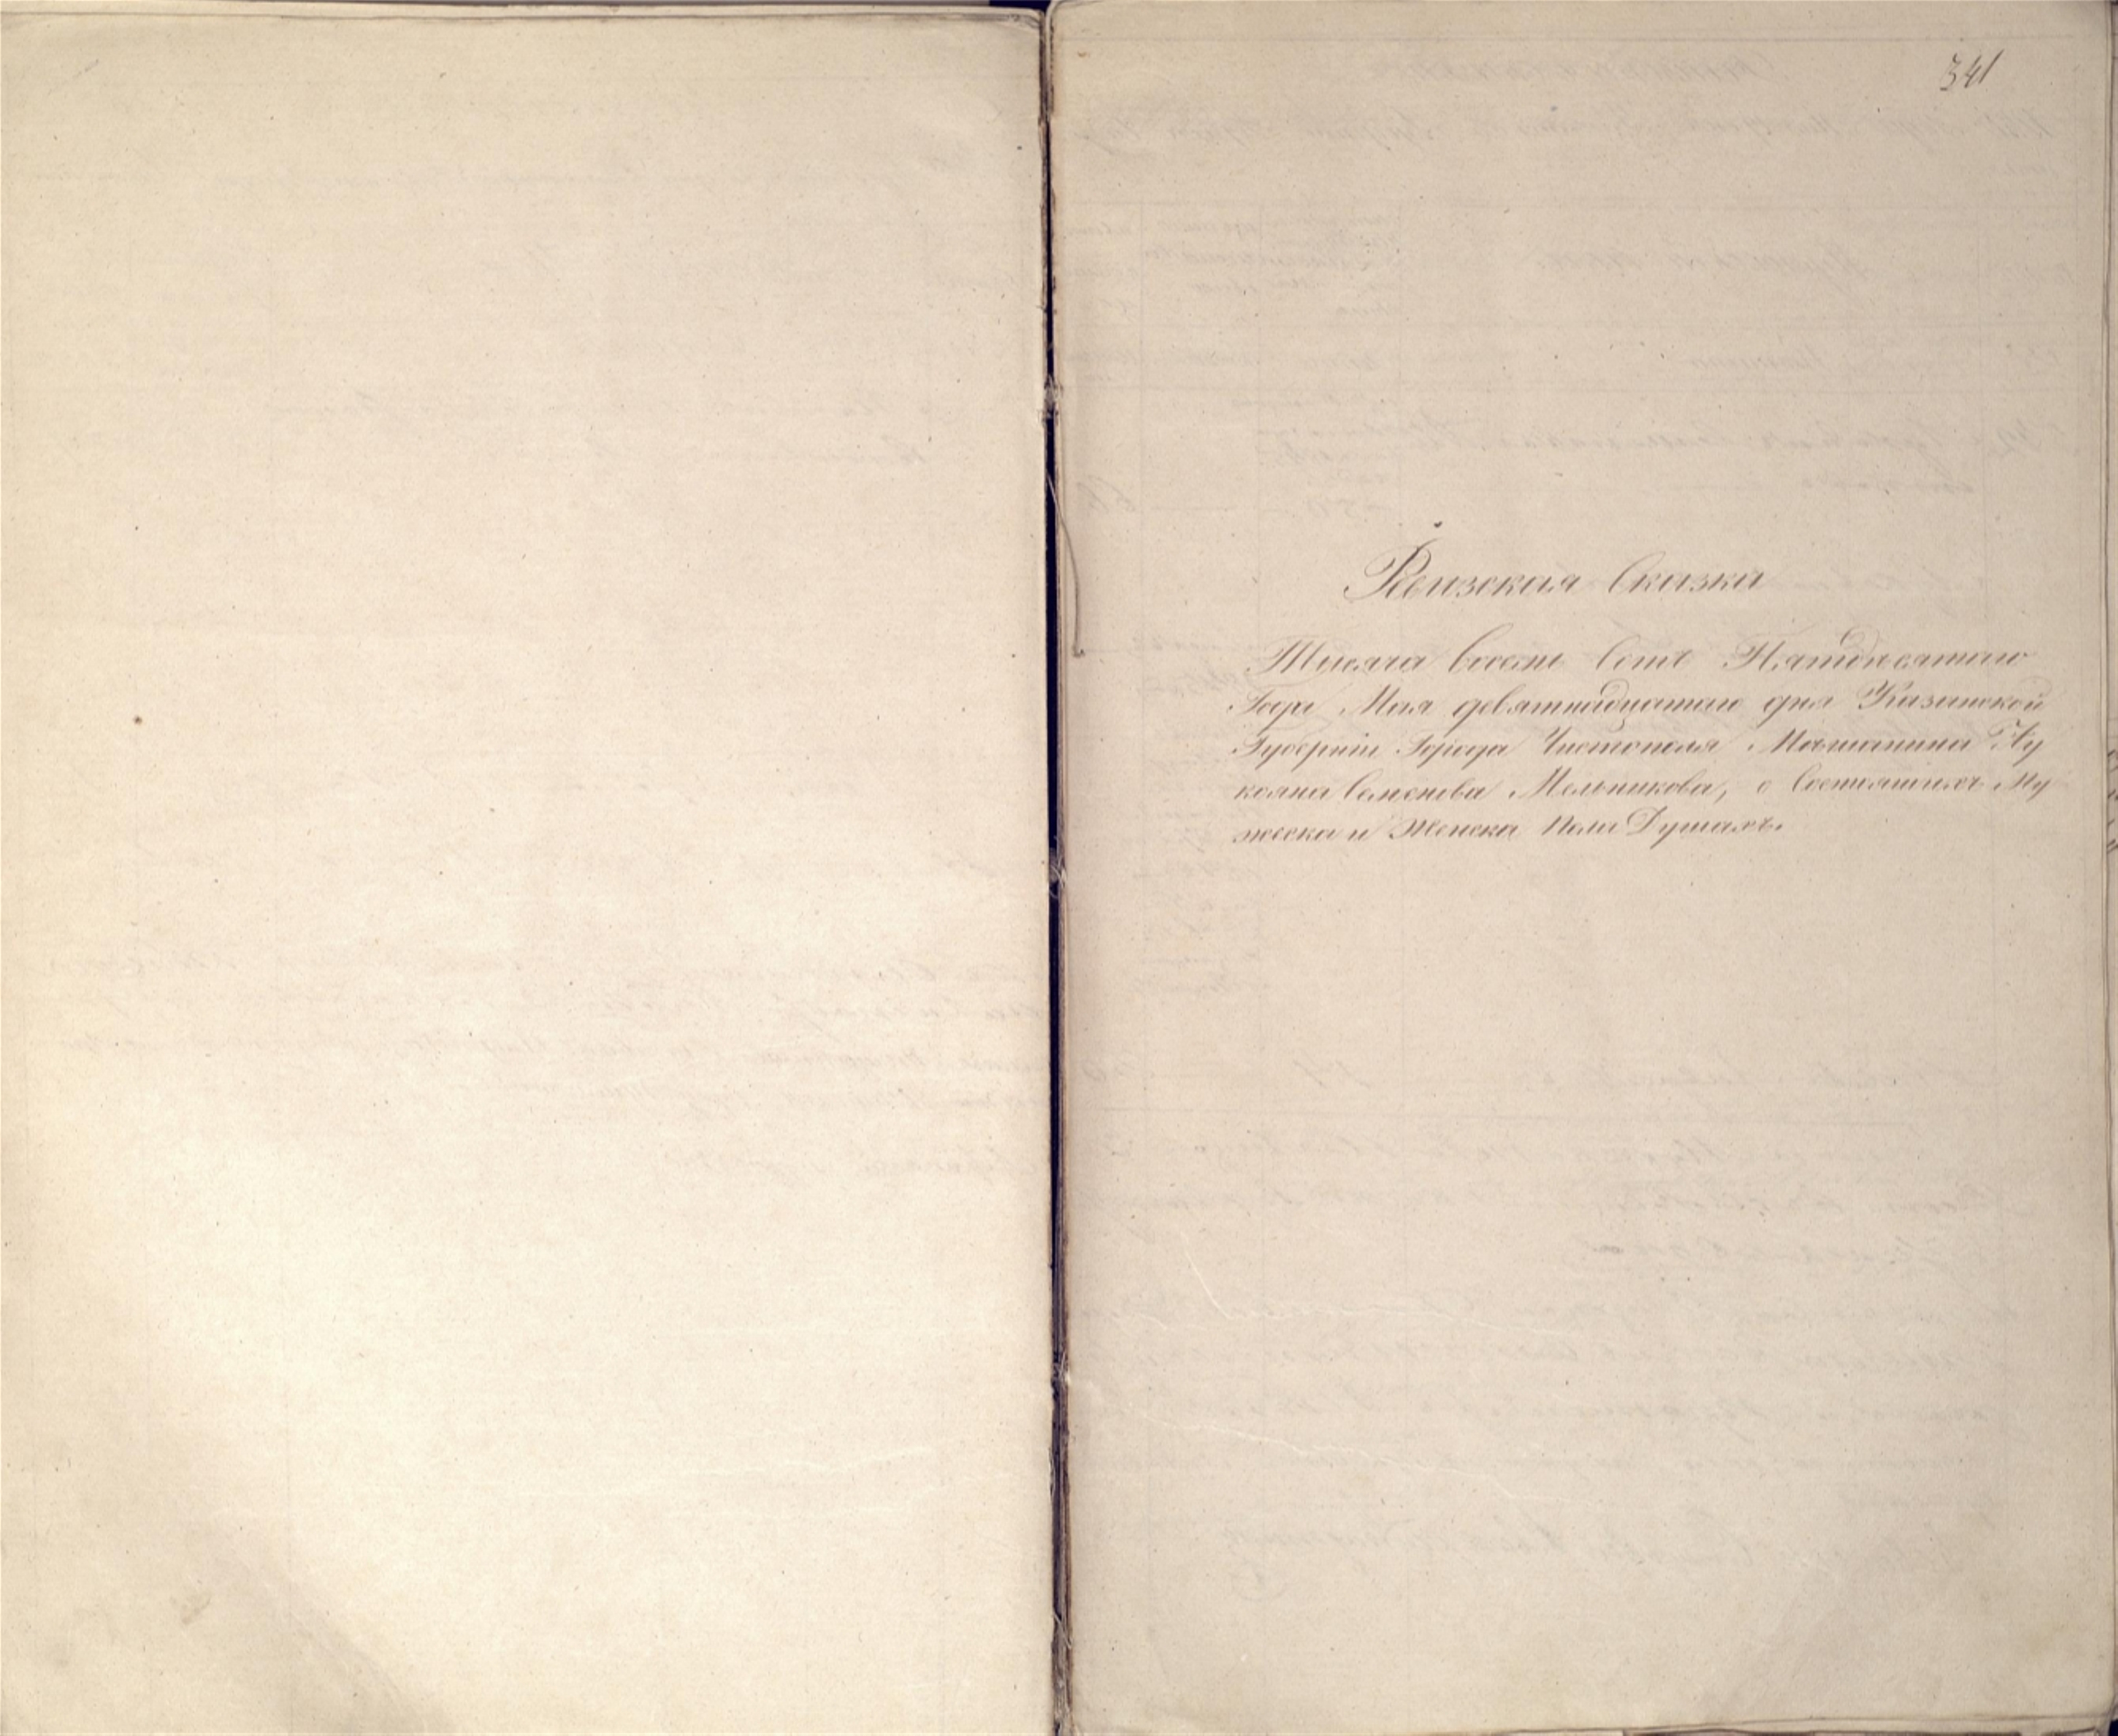 341
Ревизская Сказка
Тысяча восемь сотъ Пятидесятаго
Года Мая девятнадцатаго дня Казанской
Губерніи Города Чистополя Мѣщанина Лу
кояна Семенова Мельникова, о состоящихъ Му
жеска и Женска Пола Душахъ.